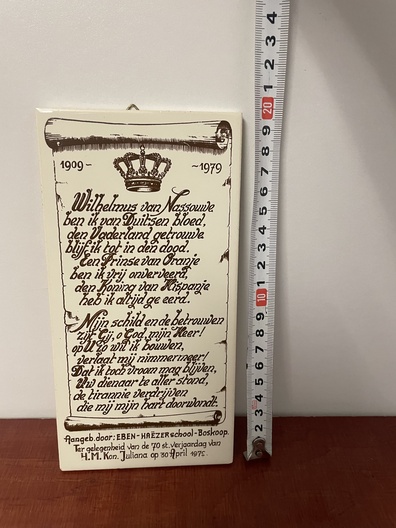 1909 ~ ~ 1979
Wilhelmus van Nassouwe
ben ik van Duitsen bloed,
den Vaderland getrouwe
blijf ik tot in den dood.
Een Prinse van Oranje
ben ik vrij onverveerd,
den Koning van Hispanje
heb ik altijd ge eerd.
Mijn schild en de betrouwen
zijt Gij, o God, mijn Heer!
op U zo wil ik bouwen,
verlaat mij nimmermeer!
Dat ik toch vroom mag blijven,
Uw dienaar te aller stond,
de tirannie verdrijven
die mij mijn hart doorwondt.
Aangeb. door: EBEN-HAËZER school - Boskoop.
Ter gelegenheid van de 70 st. verjaardag van
H.M. Kon. Juliana op 30 April
4
3
2
1
20
9
8
7
6
5
4
3
2
1
10
9
8
7
6
5
4
3
2